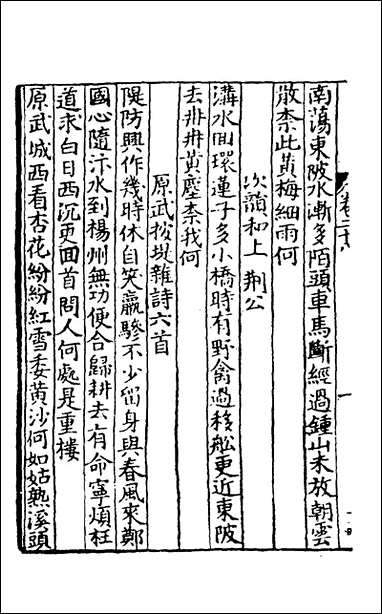 南蕩東陂水漸多陌頭車馬斷經過鍾山未放朝雲
散柰此黃梅細雨何
次韻和上荆公
溝水回環蓮子多小橋時有野禽過移舩更近東陂
去冉冉黃塵柰我何
原武按堤雜詩六首
隄防興作幾時休自笑羸驂不少留身與春風來鄭
國心隨汴水到楊州無功便合歸耕去有命寧煩枉
道求白日西沉更回首問人何處是重樓
原武城西看杏花紛紛紅雪委黃沙何如姑熟溪頭